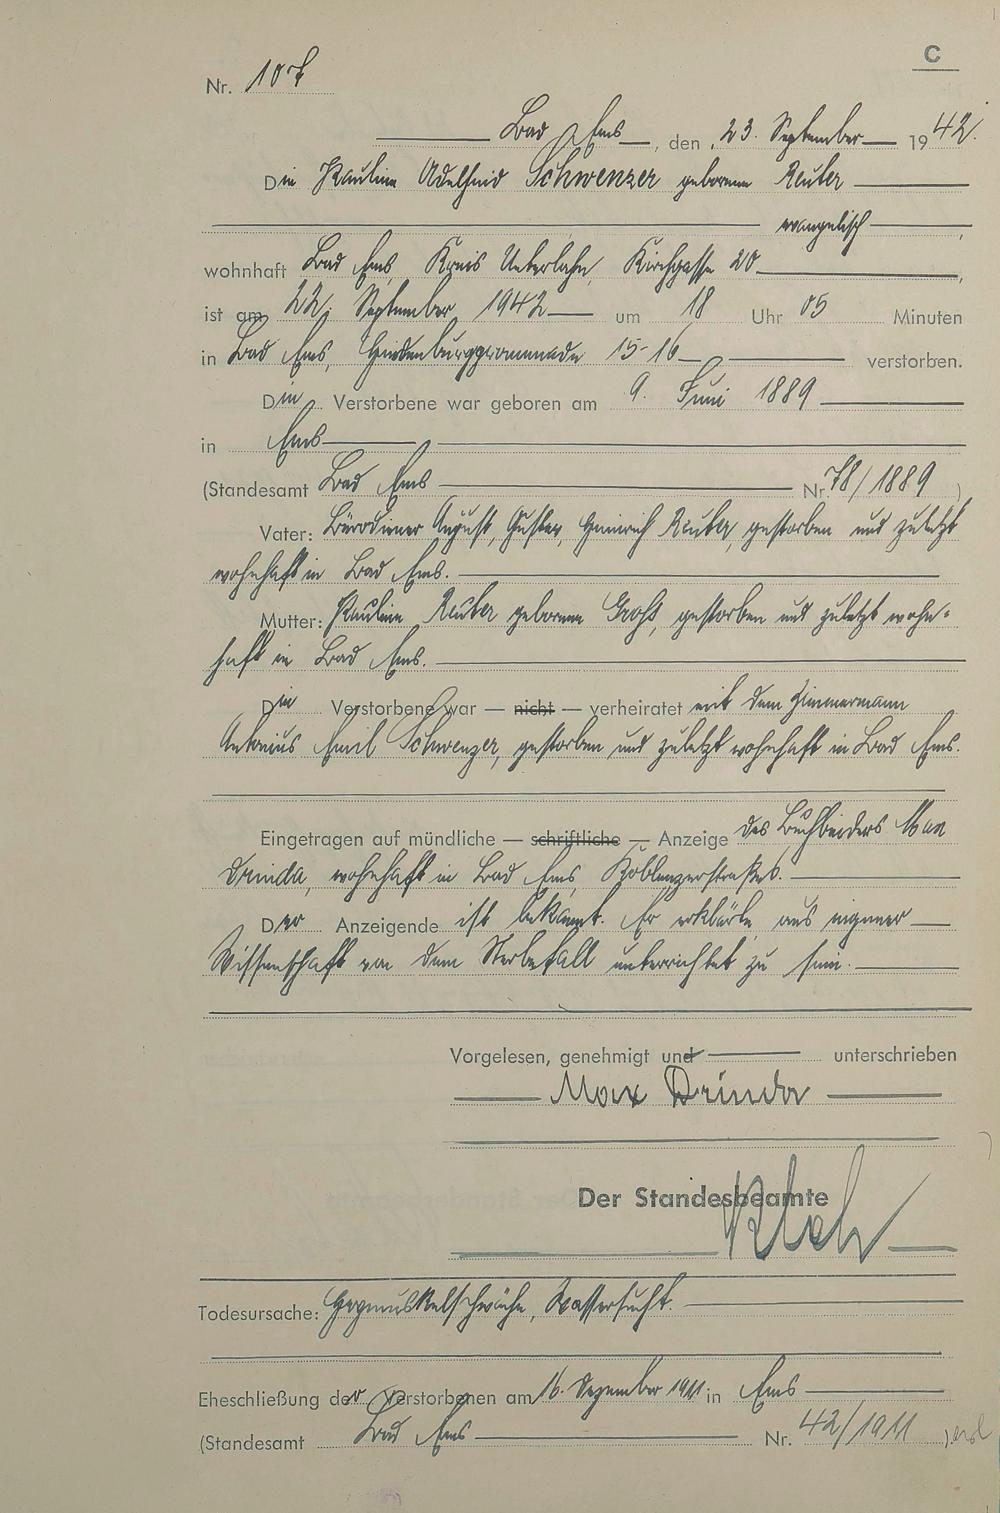 C
Nr. 107
Bad Ems, den 23. September 1942.
Die Pauline Adelheid Schwenzer geborene Reuter
evangelisch,
wohnhaft Bad Ems, Kreis Unterlahn, Kirchgasse 20,
ist am 22. September 1942 um 18 Uhr 05 Minuten
in Bad Ems, Hindenburgpromenade 15-16 verstorben.
Die Verstorbene war geboren am 9. Juni 1889
in Ems
(Standesamt Bad Ems Nr. 78/1889)
Vater: Bürodiener August, Gustav, Heinrich Reuter, gestorben und zuletzt
wohnhaft in Bad Ems.
Mutter: Pauline Reuter geborene Groß, gestorben und zuletzt wohn-
haft in Bad Ems.
Die Verstorbene war — nicht — verheiratet mit dem Zimmermann
Antonius Emil Schwenzer, gestorben und zuletzt wohnhaft in Bad Ems.
Eingetragen auf mündliche — schriftliche — Anzeige des Buchbinders Max
Drinda, wohnhaft in Bad Ems,
Der Anzeigende ist bekannt. Er erklärte, aus eigener
Wissenschaft von dem Sterbefall unterrichtet zu sein.
Vorgelesen, genehmigt und unterschrieben
Max Drinda
Der Standesbeamte
Todesursache: Herzmuskelschwäche, Wassersucht.
Eheschließung der Verstorbenen am 16. Dezember 1911 in Ems
(Standesamt Bad Ems Nr. 42/1911)